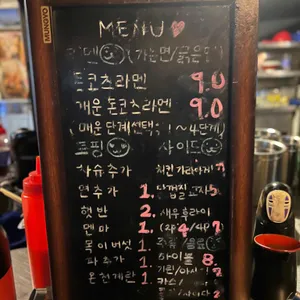 MENU
(가는면/굵은면)
돈코츠라멘 9.0
매운 돈코츠라멘 9.0
(매운단계선택: 1~4단계)
토핑 사이드
차슈추가 치킨가라아게 7
면추가 1. 교자 5
햇반 2. 새우후라이
멘마 1. (2p 4/4p 7)
목이버섯 1.
파추가 1. 하이볼 8.
온천계란 1. 기린/아사히
카스/